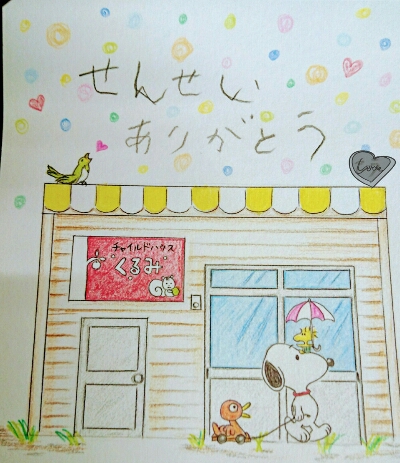 せんせい
ありがとう
チャイルドハウス
くるみ